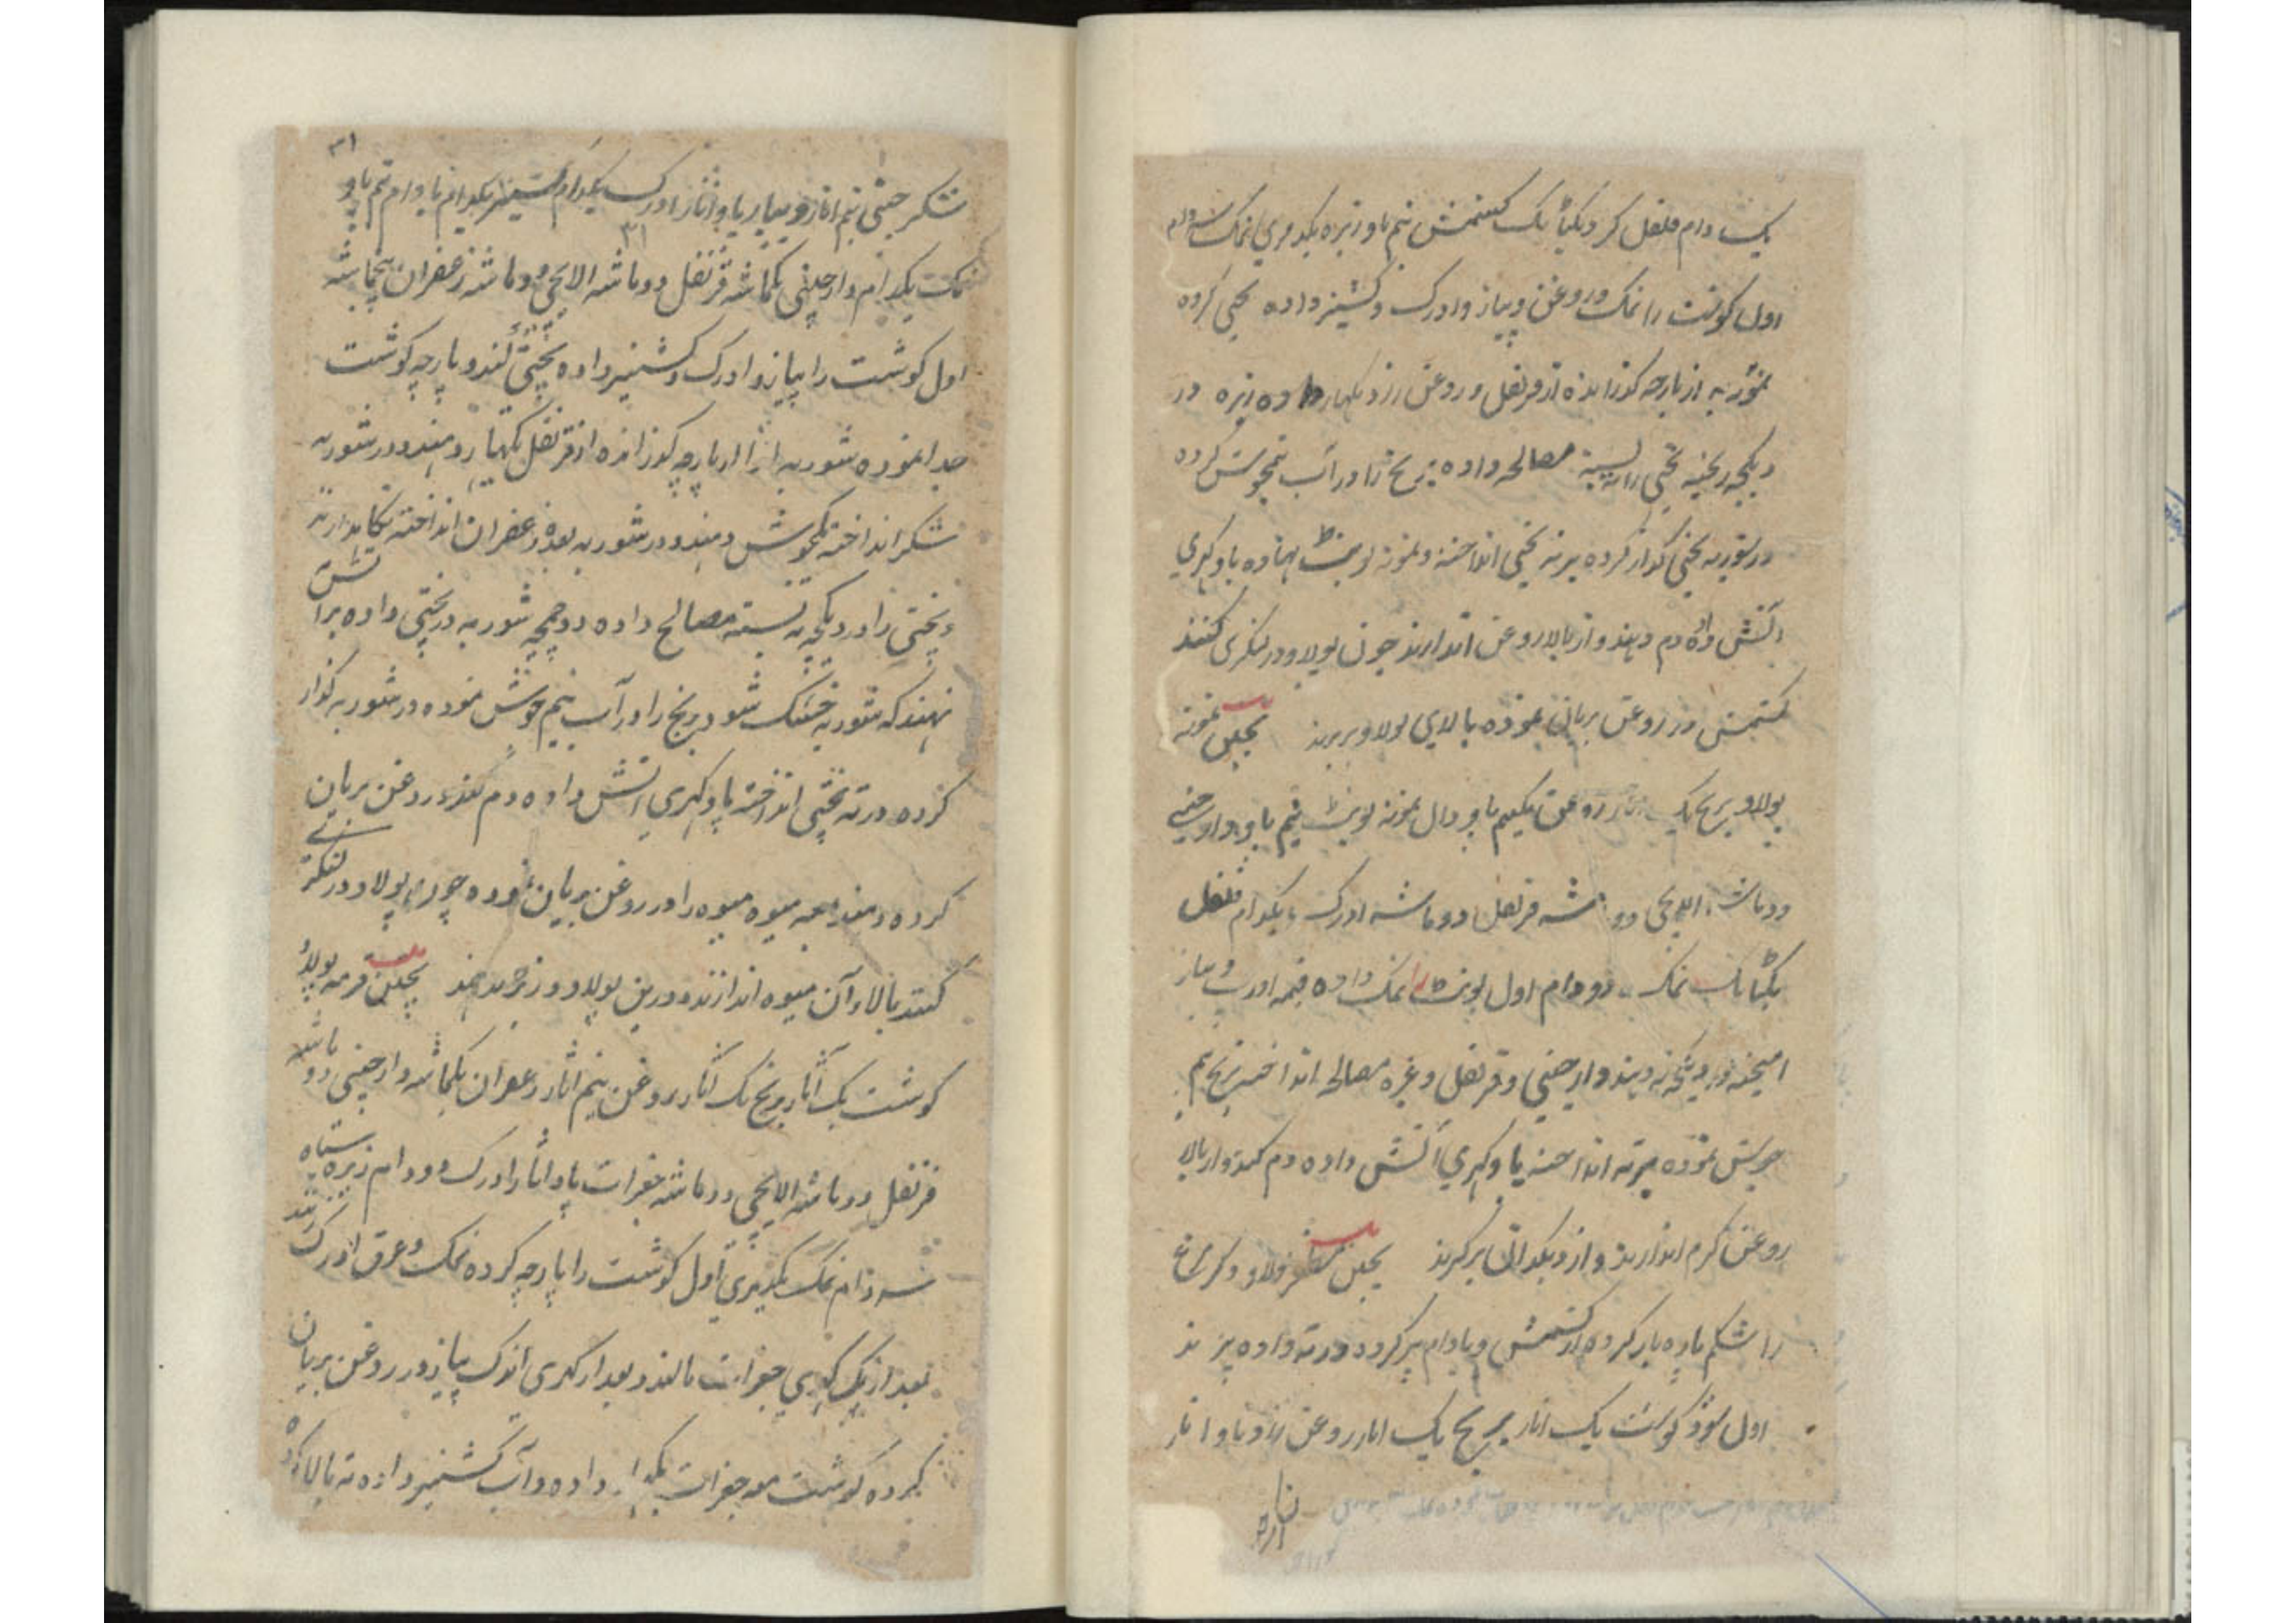 یک دام فلفل گرد یکتانک کشمش نیم پاو زیره یکدمری نمک سه دام
اول گوشت را نمک و روغن و پیاز و ادرک و کشنیز داده یخنی کرده
شوربه از پارچه گذرانده از قرنفل و روغن زرد بگهار داده زیره در
دیگچه ریخته یخنی را ته بسته مصالحه داده برنج را در آب نیمجوش کرده
در شوربه یخنی گداز کرده بر ته یخنی انداخته و نمونه لوبیا نهاده پاو گهری
آتش داده دم دهند و از بالا روغن اندازند چون پولاو در لنگری کنند
کشمش در روغن بریان نموده بالای پولاو بریزند پختن نمونه
پولاو برنج یک روغن نیم پاو دال نیم پاو دارچینی
دو ماشه الایچی دو ماشه قرنفل دو ماشه ادرک یکدام فلفل
یکتانک نمک دو دام اول نمک داده قیمه ادرک و پیاز
آمیخته در دیگچه ته دهند و دارچینی و قرنفل و غیره مصالحه انداخته برنج نیم
جوش نموده بر ته انداخته پاو گهری آتش داده دم کنند و از بالا
روغن گرم اندازند و از دیگدان برگیرند پختن پولاو
را شکم پاره کرده از کشمش و بادام پر کرده در ته داده پزند
اول گوشت یک اثار برنج یک اثار روغن پاو اثار
۳۱
شکر نیم اثار و پیاز پاو اثار ادرک یکدام کشنیز یکدام بادام نیم پاو
۳۱
نمک یکدام دارچینی یکماشه قرنفل دو ماشه الایچی دو ماشه زعفران پنجماشه
اول گوشت را پیاز و ادرک و کشنیز داده یخنی کنند و پارچه گوشت
جدا نموده شوربه را از پارچه گذرانده از قرنفل بگهار دهند و در شوربه
شکر انداخته یکجوش دهند و در شوربه بعده زعفران انداخته نگاهدارند
و یخنی را در دیگچه ته بسته مصالح داده دو چمچه شوربه در یخنی داده بر آتش
نهند که شوربه خشک شود برنج را در آب نیم جوش نموده در شوربه گداز
کرده در ته یخنی انداخته پاو گهری آتش داده دم کنند روغن بریان
کرده دهند همه میوه را در روغن بریان نموده چون پولاو در لنگری
کنند بالای آن میوه اندازند و درین پولاو پختن قرمه پولاؤ
گوشت یک اثار برنج یک اثار روغن نیم اثار زعفران یکماشه دارچینی دو ماشه
قرنفل دو ماشه الایچی دو ماشه جغرات پاو اثار ادرک دو دام زیره سیاه
سه دام نمک یکدمری اول گوشت را پارچه کرده نمک و عرق ادرک زنند
بعد از یک گهری جغرات مالند و بعد از گهری اندک پیاز در روغن بریان
کرده گوشت مع جغرات بگهار داده و آب کشنیز داده ته بالا کرده